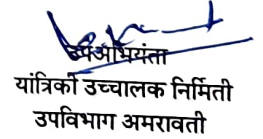 उपअभियंता
यांत्रिकी उच्चालक निर्मिती
उपविभाग अमरावती